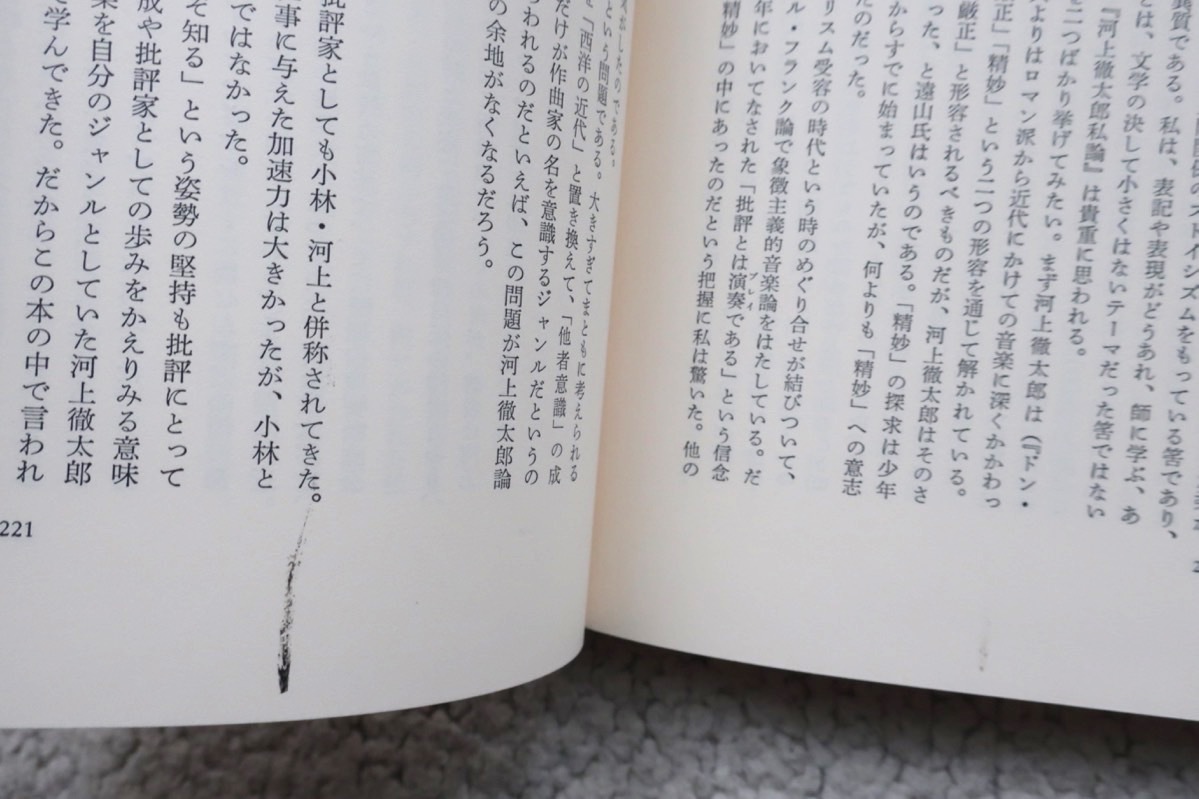 質である。私は、表記や表現がどうあれ、師に学ぶ、あ
とは、文学の決して小さくはないテーマだった筈ではない
『河上徹太郎私論』は貴重に思われる。
を二つばかり挙げてみたい。まず河上徹太郎は（『ドン・
よりはロマン派から近代にかけての音楽に深くかかわっ
正」「精妙」という二つの形容を通じて解かれている。
厳正」と形容されるべきものだが、河上徹太郎はそのさ
った、と遠山氏はいうのである。「精妙」の探求は少年
からすでに始まっていたが、何よりも「精妙」への意志
たのだった。
リスム受容の時代という時のめぐり合せが結びついて、
ル・フランク論で象徴主義的音楽論をはたしている。だ
年においてなされた「批評とは演奏である」という信念
プレイ
精妙」の中にあったのだという把握に私は驚いた。他の
かしたのである。
という問題である。大きすぎてまともに考えられる
「西洋の近代」と置き換えて、「他者意識」の成
だけが作曲家の名を意識するジャンルだというの
われるのだといえば、この問題が河上徹太郎論
の余地がなくなるだろう。
批評家としても小林・河上と併称されてきた。
事に与えた加速力は大きかったが、小林と
ではなかった。
そ知る」という姿勢の堅持も批評にとって
成や批評家としての歩みをかえりみる意味
楽を自分のジャンルとしていた河上徹太郎
学んできた。だからこの本の中で言われ
221